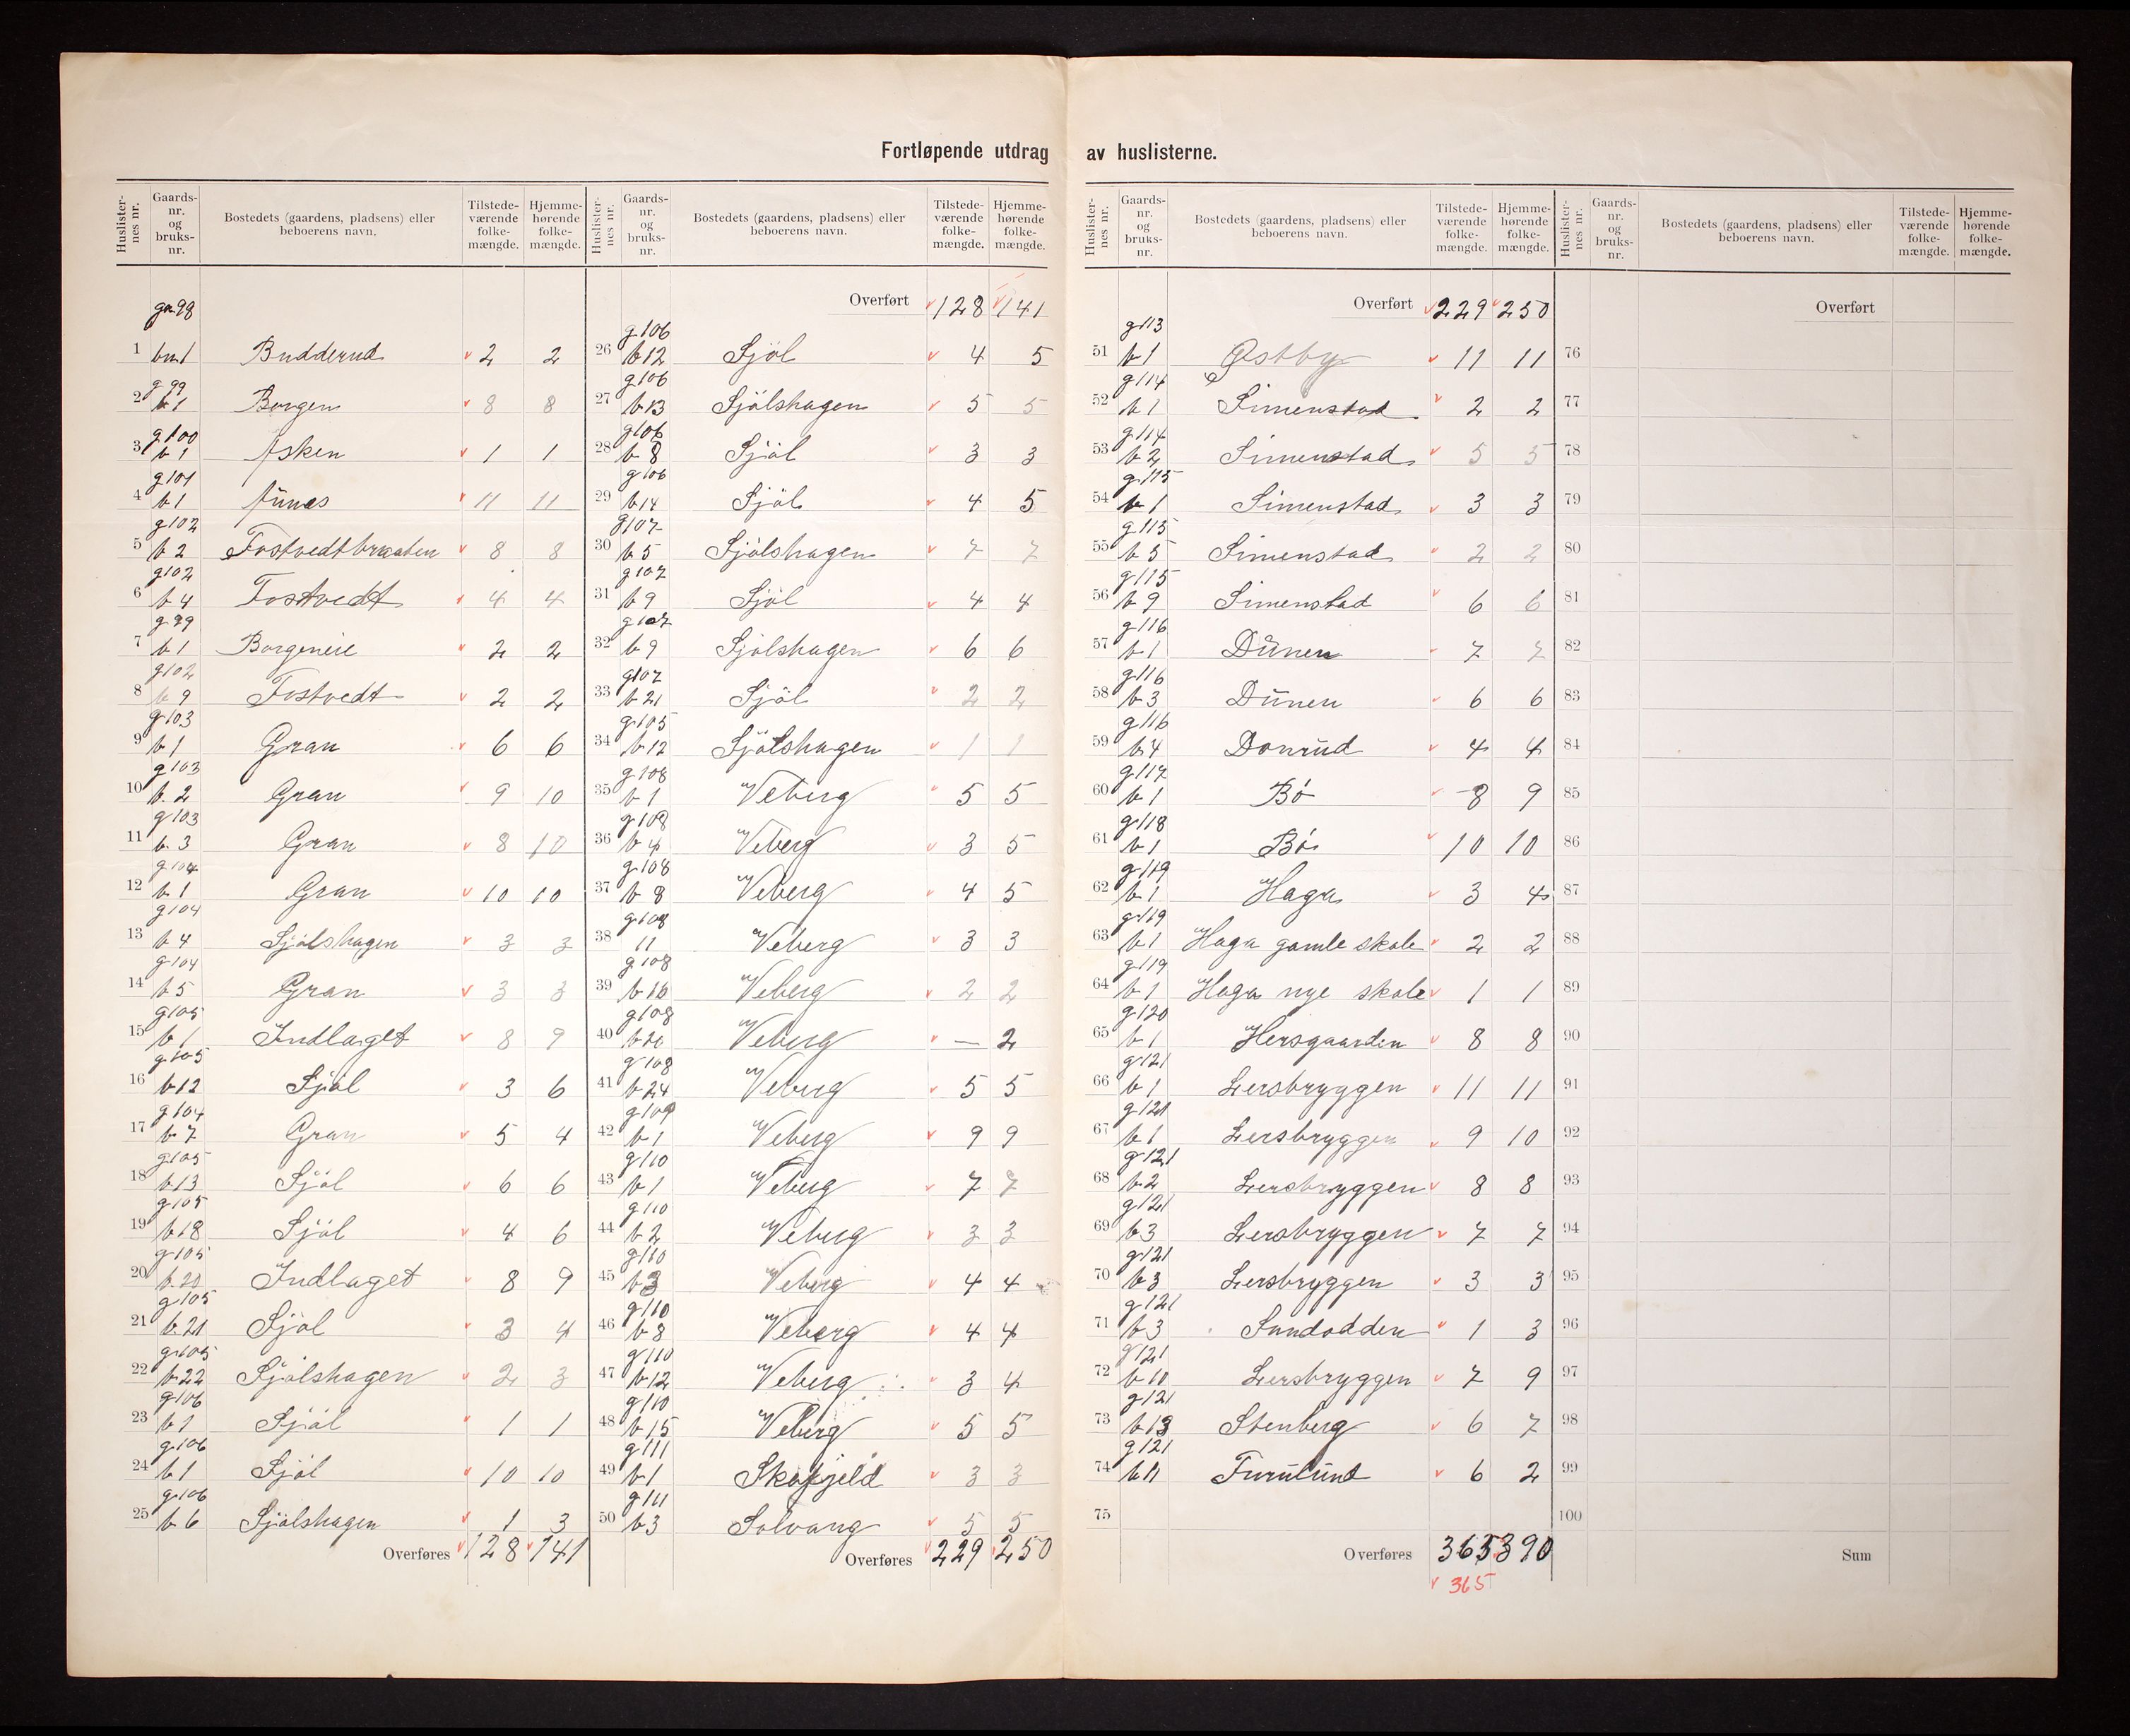 Fortløpende utdrag av huslisterne.
Huslisternes nr. Gaards-nr. og bruks-nr. Bostedets (gaardens, pladsens) eller beboerens navn. Tilstedeværende folkemængde. Hjemmehørende folkemængde.
g.n. 98
1 bn.1 Budderud 2 2
g 99
2 b 1 Borgen 8 8
g 100
3 b 1 Asken 1 1
g 101
4 b 1 Aunes 11 11
g 102
5 b 2 Fostvedtbraaten 8 8
g 102
6 b 4 Fostvedt 4 4
g 99
7 b 1 Borgeneie 2 2
g 102
8 b 9 Fostvedt 2 2
g 103
9 b 1 Gran 6 6
g 103
10 b. 2 Gran 9 10
g 103
11 b. 3 Gran 8 10
g 104
12 b. 1 Gran 10 10
g 104
13 b 4 Sjölshagen 3 3
g 104
14 b 5 Gran 3 3
g 105
15 b 1 Indlaget 8 9
g 105
16 b 12 Sjöl 3 6
g 104
17 b. 7 Gran 5 4
g 105
18 b 13 Sjöl 6 6
g 105
19 b 18 Sjöl 4 6
g 105
20 b. 20 Indlaget 8 9
g 105
21 b. 21 Sjöl 3 4
g 105
22 b. 22 Sjölshagen 2 3
g 106
23 b 1 Sjöl 1 1
g 106
24 b 1 Sjöl 10 10
g 106
25 b. 6 Sjölshagen 1 3
Overføres 128 141
Huslisternes nr. Gaards-nr. og bruks-nr. Bostedets (gaardens, pladsens) eller beboerens navn. Tilstedeværende folkemængde. Hjemmehørende folkemængde.
Overført 128 141
g 106
26 b 12 Sjöl 4 5
g 106
27 b 13 Sjölshagen 5 5
g 106
28 b 8 Sjöl 3 3
g 106
29 b 14 Sjöl 4 5
g 107
30 b 5 Sjölshagen 7 7
g 107
31 b 9 Sjöl 4 4
g 107
32 b 9 Sjölshagen 6 6
g 107
33 b 21 Sjöl 2 2
g 105
34 b 12 Sjölshagen 1 1
g 108
35 b 1 Veberg 5 5
g 108
36 b 4 Veberg 3 5
g 108
37 b 8 Veberg 4 5
g 108
38 11 Veberg 3 3
g 108
39 Veberg 2 2
g 108
40 Veberg — 2
g 108
41 b 24 Veberg 5 5
g 109
42 b 1 Veberg 9 9
g 110
43 b 1 Veberg 7 7
g 110
44 b 2 Veberg 3 3
g 110
45 b 3 Veberg 4 4
g 110
46 b 8 Veberg 4 4
g 110
47 b 12 Veberg 3 4
g 110
48 b 15 Veberg 5 5
g 111
49 b 1 Skofjeld 3 3
g 111
50 b 3 Solvang 5 5
Overføres 229 250
Huslisternes nr. Gaards-nr. og bruks-nr. Bostedets (gaardens, pladsens) eller beboerens navn. Tilstedeværende folkemængde. Hjemmehørende folkemængde.
Overført 229 250
g 113
51 b 1 Østby 11 11
g 114
52 b 1 Simenstad 2 2
g 114
53 b 2 Simenstad 5 5
g 115
54 b 1 Simenstad 3 3
g 115
55 b 5 Simenstad 2 2
g 115
56 b 9 Simenstad 6 6
g 116
57 b 1 Dünen 7 7
g 116
58 b 3 Dünen 6 6
g 116
59 b 4 Donrud 4 4
g 117
60 b 1 Bö 8 9
g 118
61 b 1 Bö 10 10
g 119
62 b 1 Haga 3 4
g 119
63 b 1 Haga gamle skole 2 2
g 119
64 b 1 Haga nye skole 1 1
g 120
65 b 1 Hersgaarden 8 8
g 121
66 b 1 Lersbryggen 11 11
g 121
67 b 1 Lersbryggen 9 10
g 121
68 b 2 Lersbryggen 8 8
g 121
69 b 3 Lersbryggen 7 7
g 121
70 b 3 Lersbryggen 3 3
g 121
71 b 3 Sundodden 1 3
g 121
72 b 10 Lersbryggen 7 9
g 121
73 b 13 Stenberg 6 7
g 121
74 b 11 Furulund 6 2
75
Overføres 365 390
365
Huslisternes nr. Gaards-nr. og bruks-nr. Bostedets (gaardens, pladsens) eller beboerens navn. Tilstedeværende folkemængde. Hjemmehørende folkemængde.
Overført
76
77
78
79
80
81
82
83
84
85
86
87
88
89
90
91
92
93
94
95
96
97
98
99
100
Sum